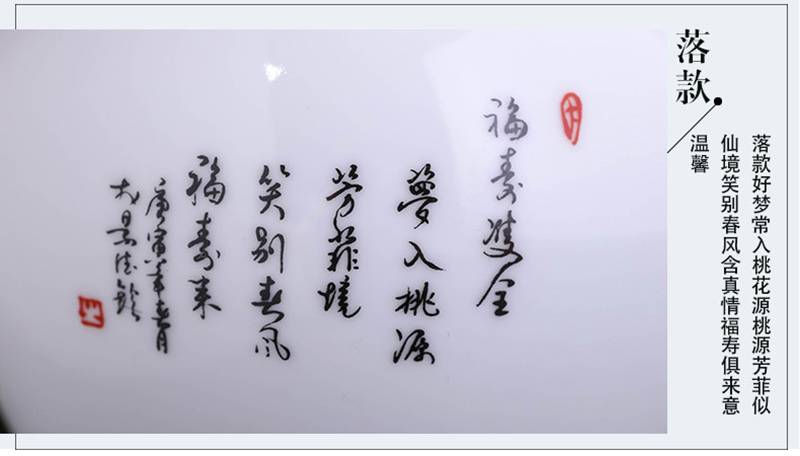 落款
落款好梦常入桃花源桃源芳菲似
仙境笑别春风含真情福寿俱来意
温馨
福寿雙全
夢入桃源
芳菲境
笑别春风
福寿来
庚寅年春月
於景德鎮